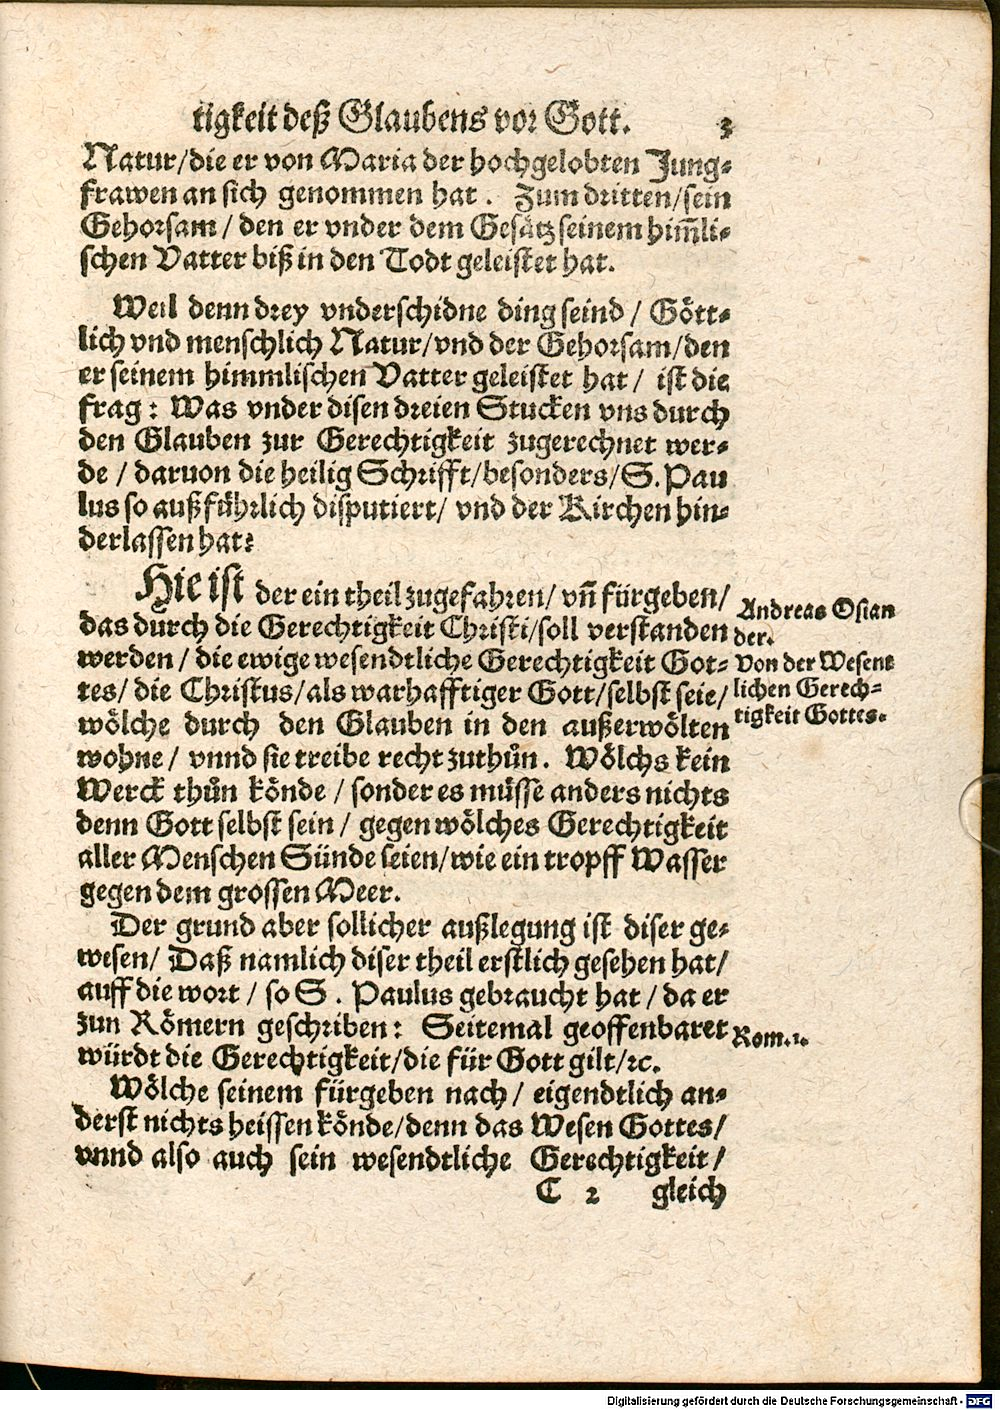 tigkeit deß Glaubens vor Gott. 3
Natur/die er von Maria der hochgelobten Jung-
frawen an sich genommen hat. Zum dritten/sein
Gehorsam/ den er vnder dem Gesätz seinem him̃li-
schen Vatter biß in den Todt geleistet hat.
Weil denn drey vnderschidne ding seind/ Gött-
lich vnd menschlich Natur/vnd der Gehorsam/den
er seinem himmlischen Vatter geleistet hat/ ist die
frag: Was vnder disen dreien Stucken vns durch
den Glauben zur Gerechtigkeit zugerechnet wer-
de/ daruon die heilig Schrifft/besonders/S. Pau
lus so außfuͤhrlich disputiert/ vnd der Kirchen hin-
derlassen hat?
Hie ist der ein theil zugefahren/ vñ fürgeben/
das durch die Gerechtigkeit Christi/soll verstanden
werden/ die ewige wesendtliche Gerechtigkeit Got-
tes/ die Christus/als warhafftiger Gott/selbst seie/
wölche durch den Glauben in den außerwölten
wohne/ vnnd sie treibe recht zuthůn. Wölchs kein
Werck thůn könde/ sonder es müsse anders nichts
denn Gott selbst sein/ gegen wölches Gerechtigkeit
aller Menschen Sünde seien/wie ein tropff Wasser
gegen dem grossen Meer.
Andreas Osian
der.
Von der Wesent
lichen Gerech-
tigkeit Gottes.
Der grund aber sollicher außlegung ist diser ge-
wesen/ Daß namlich diser theil erstlich gesehen hat/
auff die wort/ so S. Paulus gebraucht hat/ da er
zun Römern geschriben: Seitemal geoffenbaret
würdt die Gerechtigkeit/die für Gott gilt/ꝛc.
Rom. 1.
Wölche seinem fürgeben nach/ eigendtlich an-
derst nichts heissen könde/denn das Wesen Gottes/
vnnd also auch sein wesendtliche Gerechtigkeit/
C 2 gleich
Digitalisierung gefördert durch die Deutsche Forschungsgemeinschaft - DFG